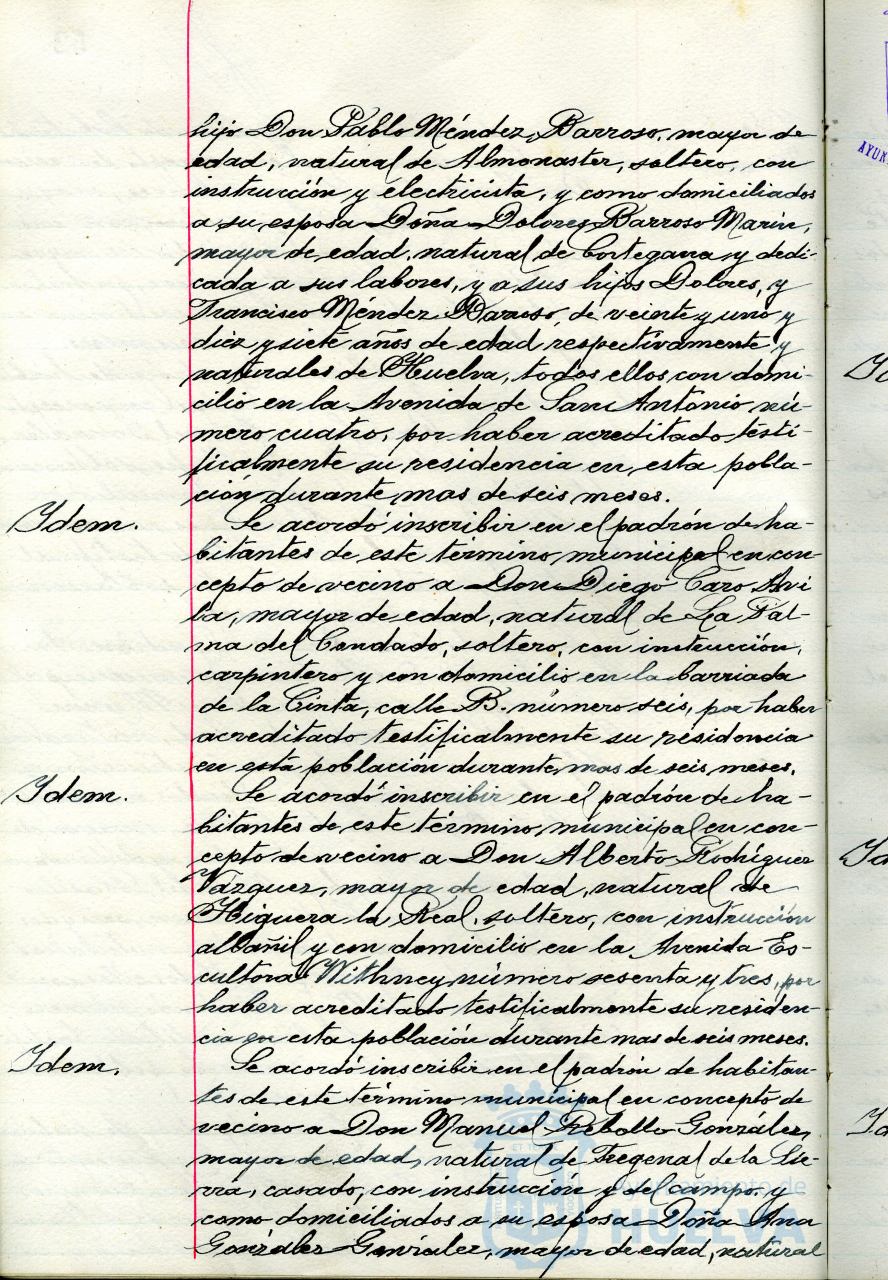 hijo Don Pablo Méndez Barroso, mayor de
edad, natural de Almonaster, soltero, con
instrucción y electricista, y como domiciliados
a su esposa Doña Dolores Barroso Marín,
mayor de edad, natural de Cortegana y dedi-
cada a sus labores, y a sus hijos Dolores, y
Francisco Méndez Barroso, de veinte y uno y
diez y siete años de edad respectivamente y
naturales de Huelva, todos ellos con domi-
cilio en la Avenida de San Antonio nú-
mero cuatro, por haber acreditado testi-
ficalmente su residencia en esta pobla-
ción durante mas de seis meses.
Idem. Se acordó inscribir en el padrón de ha-
bitantes de este término municipal en con-
cepto de vecino a Don Diego Caro Avi
la, mayor de edad, natural de La Pal-
ma del Condado, soltero, con instrucción,
carpintero y con domicilio en la barriada
de la Cinta, calle B. número seis, por haber
acreditado testificalmente su residencia
en esta población durante mas de seis meses.
Idem. Se acordó inscribir en el padrón de ha-
bitantes de este término municipal en con-
cepto de vecino a Don Alberto Rodríguez
Vázquez, mayor de edad, natural de
Higuera la Real, soltero, con instrucción
albañil y con domicilio en la Avenida Es-
cultora Withney número sesenta y tres, por
haber acreditado testificalmente su residen-
cia en esta población durante mas de seis meses.
Idem. Se acordó inscribir en el padrón de habitan-
tes de este término municipal en concepto de
vecino a Don Manuel Rebollo González,
mayor de edad, natural de Fregenal de la Sie-
rra, casado, con instrucción y del campo, y
como domiciliados a su esposa Doña Ana
González González, mayor de edad, natural
Ayuntamiento de
HUELVA